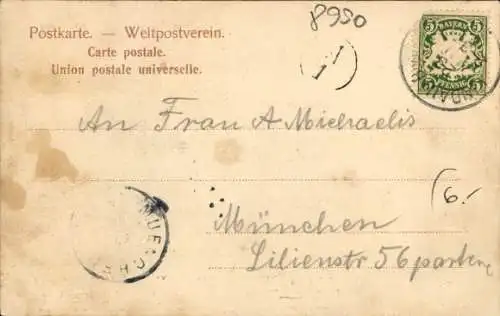 8950
Postkarte. — Weltpostverein.
Carte postale.
Union postale universelle.
5 BAYERN 5
5 PFENNIG 5
An Frau A Michaelis
(6.-
München
Lilienstr 56 parterre
MUENCH